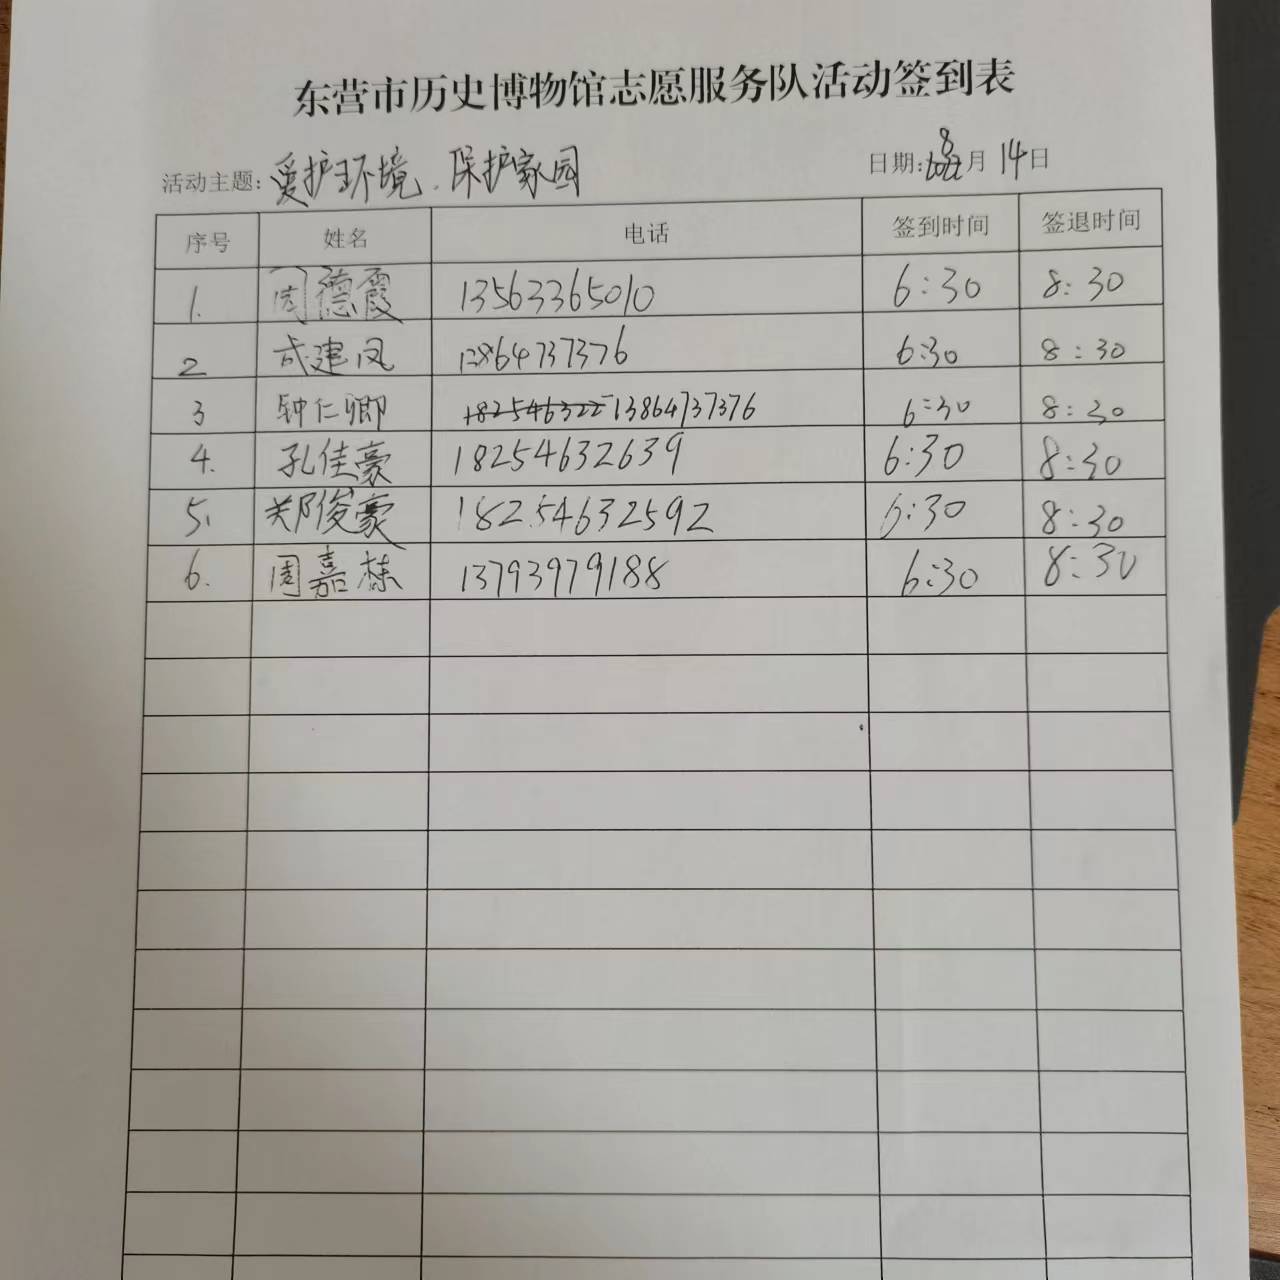 东营市历史博物馆志愿服务队活动签到表
活动主题: 爱护环境.保护家园 日期: 8月14日
序号 姓名 电话 签到时间 签退时间
1. 周德霞 13563365010 6:30 8:30
2 成建凤 13864737376 6:30 8:30
3 钟仁卿 182546322 13864737376 6:30 8:30
4. 孔佳豪 18254632639 6:30 8:30
5. 郑俊豪 18254632592 6:30 8:30
6. 周嘉栋 13793979188 6:30 8:30